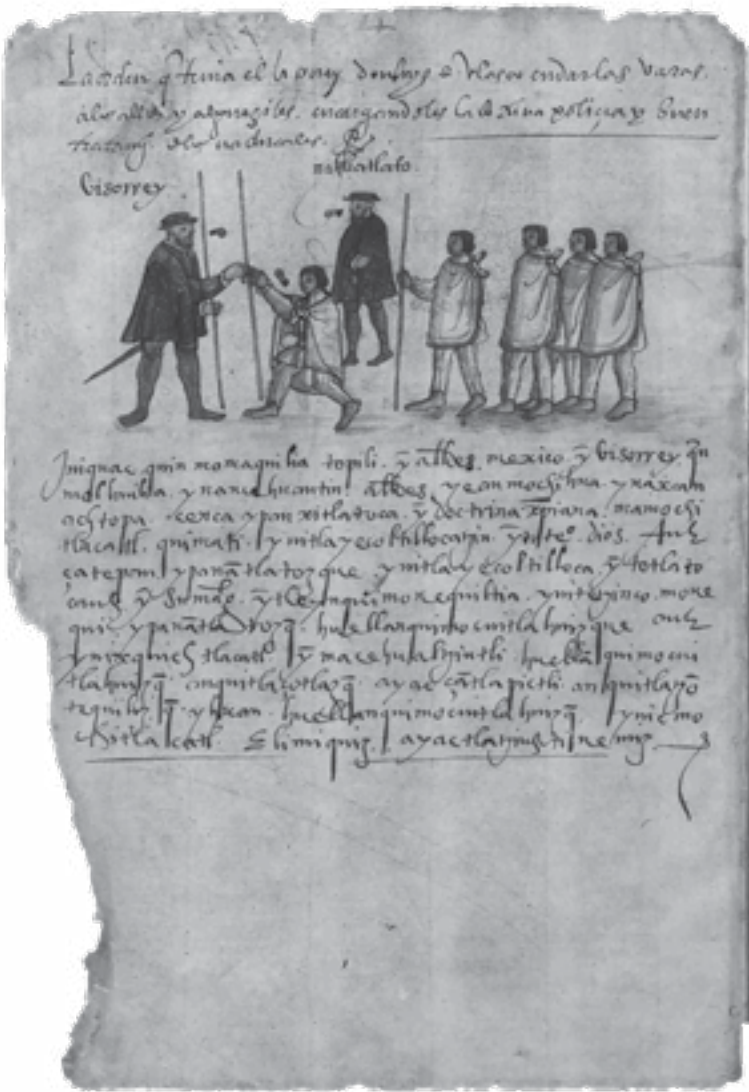 La orden q̃ tenia el la por don luys de velasco en dar las varas.
a los alldes y alguaziles. encargandoles la doctrina poliçia y buen
tratamjº. de los naturales.
nauatlato.
Visorrey
Iniquac quin momaquilia topili. yn alldes. mexico. yn Visorrey.
molhuilia. y nanehuantin. alldes yc anmochihua. ynaxcan
achtopa cenca ypan xitlatoca. yn doctrina xpiana. ma mochi
tlacatl. quimati. ynitlayecoltillocatzin yn toteº. dios. Auh
çatepan ypan antlatozque. ynitlayecoltilloca. yn totlato
cauh yn Su magº. yn tleyn quimonequiltia. ynitechinco. mone
qui. ypan antlatozq̃. huel anquimocuitlahuizque auh
ynixquich tlacatl yn macehualtzintli. huel anquimocui
tlahuizq̃. anquitlaçotlazq̃. ayac çan tlapictli anquitlayo
huel anquimocuitlahuizq̃. ynic mo
chi tlacatl. elimiquiz. ayac tlatziuhtinemiz